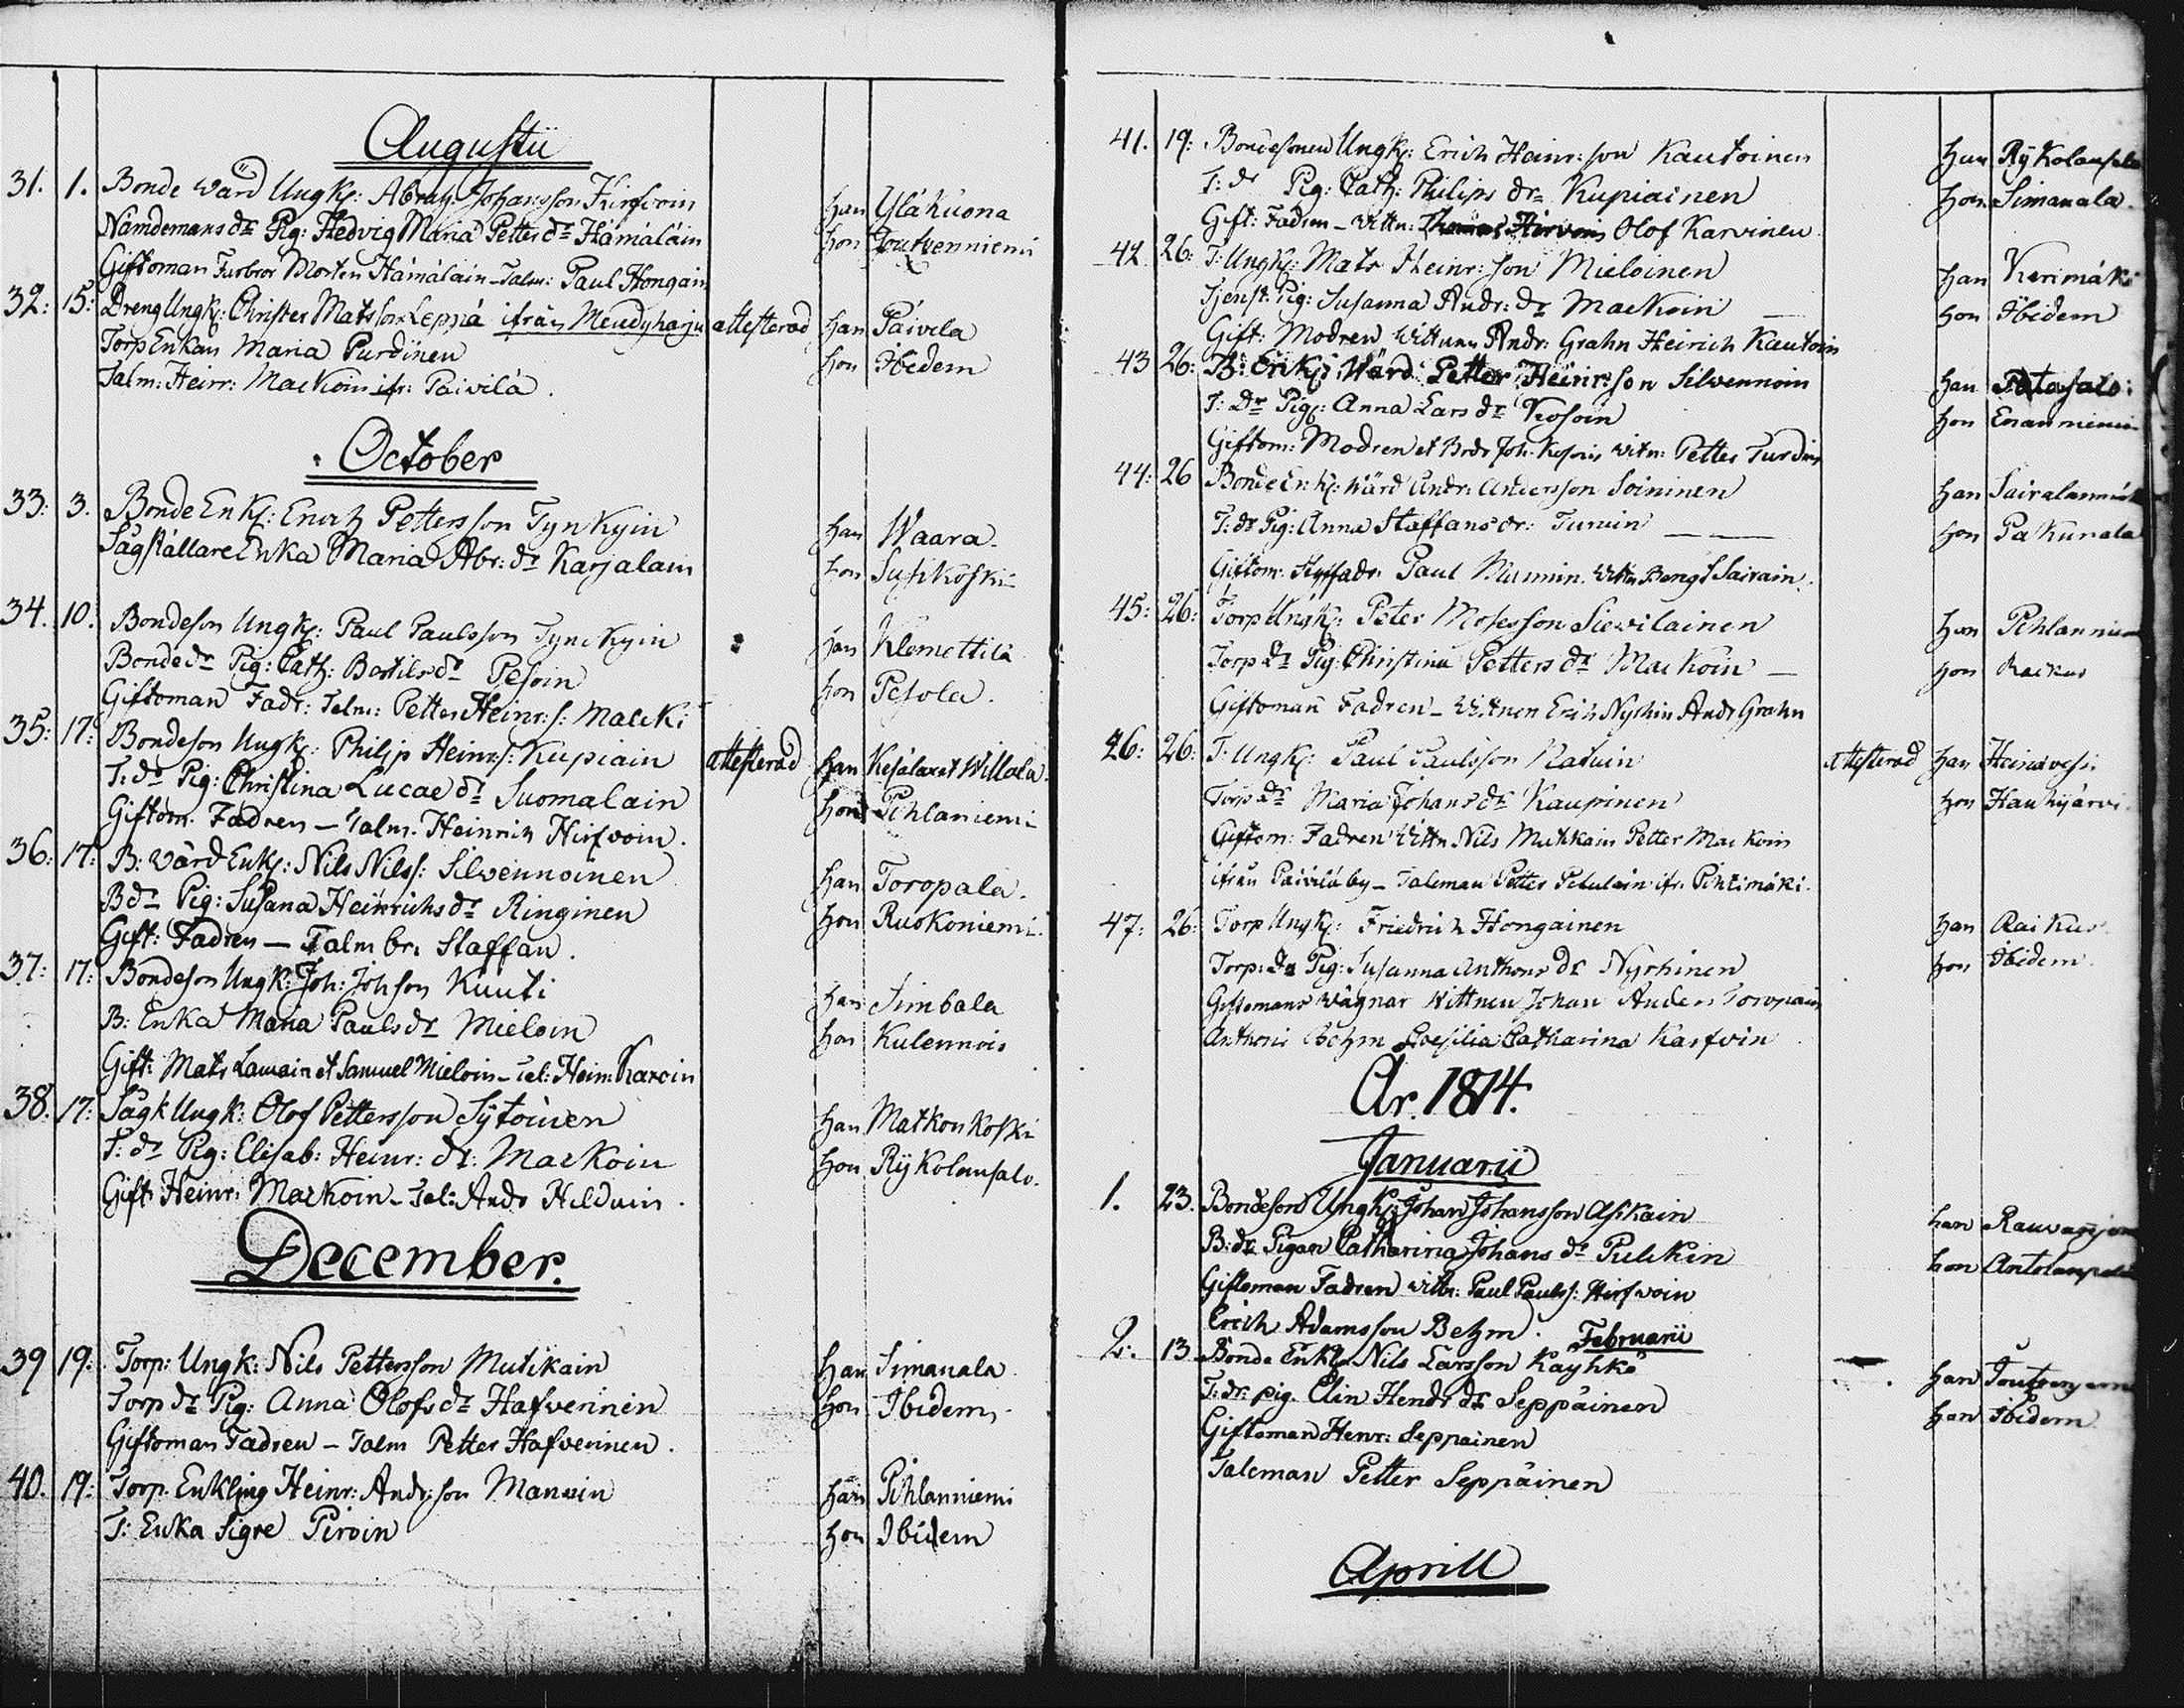 Augustii
31. 1. Bonde Wärd Ungk: Abrah: Johansson Hirfvoin han Yläkuona
Nämdemans dr Pig: Hedvig Maria Petters dr Hämäläin hon Joutzenniemi
Giftoman Farbror Morten Hämäläin - Talm: Paul Hongain
32: 15: Dreng Ungk: Christer Matsson Leppä ifrån Mendyharju attesterad han Päivilä
Torp Enkan Maria Purdinen hon Ibidem
Talm: Heinr: Mackoin ifr: Paivilä.
October
33: 3. Bonde Enk: Erich Pettersson Tynkyin han Waara.
Sågställare Enka Maria Abr: dr Karjalain hon Susikoski
34. 10: Bondeson Ungk: Paul Paulsson Tynckyin han Klemettilä
Bonde dr Pig: Cath: Bertils dr Pesoin hon Pesola.
Giftoman Fadr: Talm: Petter Heinr: s: Macki
35: 17: Bondeson Ungk: Philip Heinr: s: Kupiain attesterad han Kesälax et Willala.
T: dr Pig: Christina Lucae dr Suomalain hon Pihlaniemi
Giftom. Fadren - Talm. Heinrich Hirfvoin.
36: 17: B: Wärd Enk: Nils Nilss: Silvennoinen han Toropala.
B dr Pig: Susana Heinrichs dr Ringinen hon Ruokoniemi.
Gift: Fadren - Talm br: Staffan.
37: 17: Bondeson Ungk: Joh: Johson Kuuti han Simbala
B: Enka Maria Pauls dr Mieloin hon Kulennois
Gift: Mats Lamain et Samuel Mieloin - Tal: Hein: Karvin
38. 17: Sågk Ungk: Olof Pettersson Sytoinen han Matkon koski
T: dr Pig: Elisab: Heinr: dr: Mackoin hon Rykolansalo.
Gift: Heinr: Mackoin - Tal: Andr Hilduin.
December.
39 19: Torp: Ungk: Nils Pettersson Mutikain han Simanala
Torp dr Pig: Anna Olofs dr Hafverinen hon Ibidem.
Giftoman Fadren - Talm Petter Hafverinen.
40. 19: Torp. Enkling Heinr: Andr: son Manuin han Pihlanniemi
T: Enka Sigre Piroin hon Ibidem
41. 19: Bondesonen Ungk: Erich Heinr: son Kautoinen han Rykolansalo
T: dr Pig: Cath: Philips dr Kupiainen hon Simanala.
Gift: Fadren - Vittn: Olof Karvinen
42 26: T: Ungk: Mats Heinr: son Mieloinen han Kerimäki
Tjenst: Pig: Susanna Andr: dr Mackoin hon Ibidem
Gift: Modren Wittnen Andr: Grahn Heinrich Kautoin
43 26: B: Enk: Wärd Petter Heinr: son Silvennoin han Patasalo:
T: Dr Pig: Anna Lars dr Kosoin hon Enanniemi
Giftom: Modren et Brdr Joh. Kosoin Witn: Petter Turdin
44: 26 Bonde Enk: Wärd Andr: Andersson Soininen han
T: dr Pig: Anna Staffans dr: Turuin hon Pakunala
Giftom: Styffadr. Paul Munnin. Wittn Bengt Sairain.
45: 26: Torp Ungk: Peter Mosesson Sievilainen han Pihlannie
Torp Dr Pig: Christina Petters dr Mackoin hon Raikus
Giftoman Fadren - Wittnen Erich Nyshin Andr Grahn
46: 26: T: Ungk: Paul Paulsson Natuin attesterad han Heinävesi.
Torp dr Maria Johans dr Kaupinen hon Haukijärvi.
Giftom: Fadren Wittn Nils Mutkain Petter Mackoin
ifrån Paivilä by - Taleman Petter Pitulain ifr. Pihtimäki.
47: 26: Torp Ungk: Friedrich Hongainen han Raikus
Torp: dr Pig: Susanna Anthons dr Nyrhinen hon Ibidem.
Giftomans Wägnar Wittnen Johan Anders Toropain
Anthoni Böhm Catharina Karfvin
År. 1814.
Januarii
1. 23. Bondeson Ungk: Johan Johansson Asikain han
B: dr Pigan Catharina Johans dr Pulkin hon
Giftoman Fadren Wittn: Paul Paulss: Hirfvoin
Erich Adamsson Behm.
Februarii
2: 13 Bonde Enkl Nils Larsson Kayhkö han
T: dr: pig. Elin Hendr dr Seppäinen hon Ibidem
Giftoman Henr: Seppainen
Taleman Petter Seppäinen
Aprill